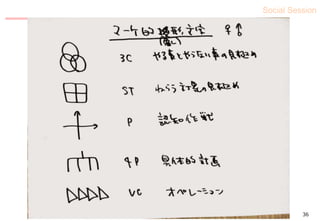 Social Session
マーケ的 象形文字 ♀♂
(癒し)
3C やる事とやらない事の見極め
ST ねらう対象の見極め
P 認知作戦
4P 具体的計画
VC オペレーション
36